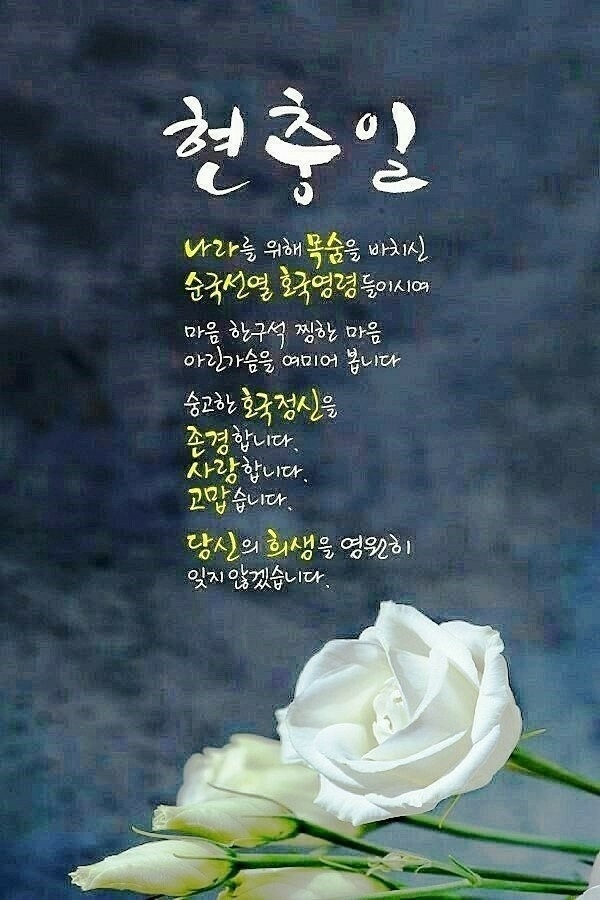 현충일
나라를 위해 목숨을 바치신
순국선열 호국영령들이시여
마음 한구석 찡한 마음
아린가슴을 여미어 봅니다
숭고한 호국정신을
존경합니다.
사랑합니다.
고맙습니다.
당신의 희생을 영원히
잊지 않겠습니다.